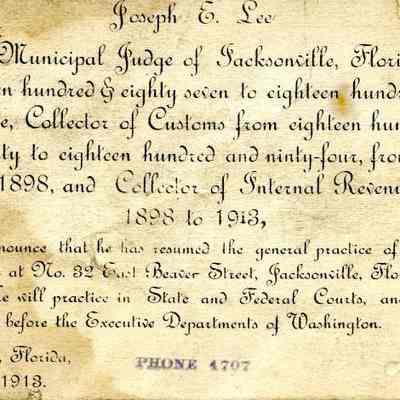 Joseph E. Lee
Municipal Judge of Jacksonville, Flori
n hundred & eighty seven to eighteen hundr
e, Collector of Customs from eighteen hun
ty to eighteen hundred and ninety-four, fro
1898, and Collector of Internal Reven
1898 to 1913,
nounce that he has resumed the general practice of
at No. 32 East Beaver Street, Jacksonville, Flo
e will practice in State and Federal Courts, an
before the Executive Departments of Washington.
, Florida,
1913.
PHONE 4707